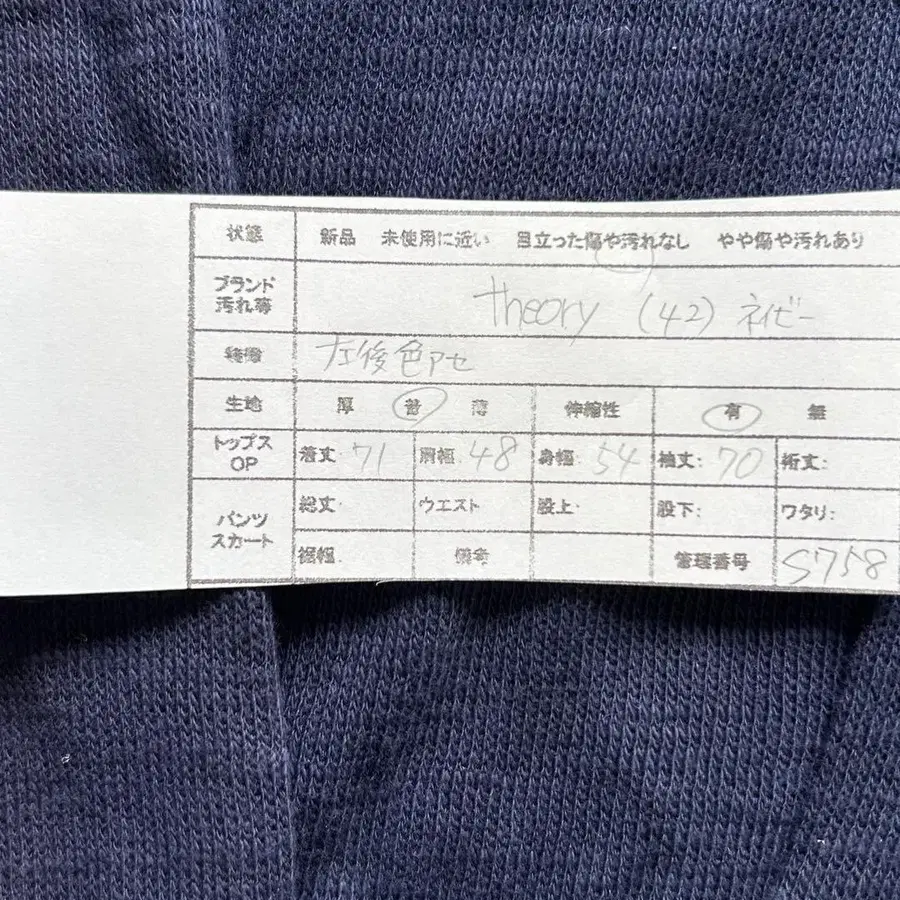 状態 新品 未使用に近い 目立った傷や汚れなし やや傷や汚れあり
ブランド
汚れ等 theory (42) ネイビー
特徴 左後色アセ
生地 厚 普 薄 伸縮性 有 無
トップス
OP 着丈: 71 肩幅: 48 身幅: 54 袖丈: 70 裄丈:
パンツ
スカート 総丈: ウエスト 股上: 股下: ワタリ:
裾幅: 備考 管理番号 S758